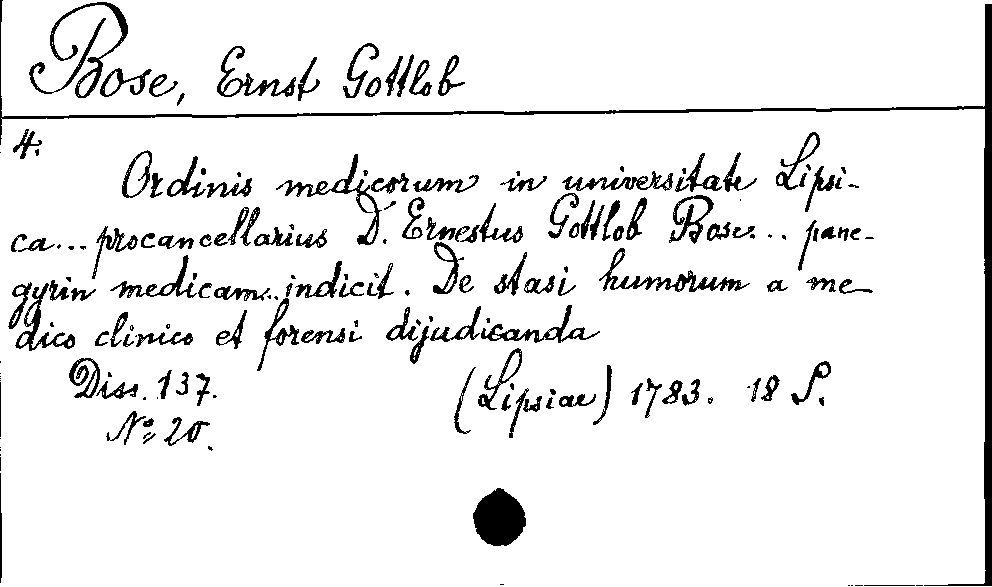 Bose, Ernst Gottlob
4.
Ordinis medicorum in universitate Lipsi-
ca... procancellarius D. Ernestus Gottlob Bose... pane-
gyrin medicam... indicit. De stasi humorum a me-
dico clinico et forensi dijudicanda
Diss. 137. (Lipsiae) 1783. 18 S.
No 20.